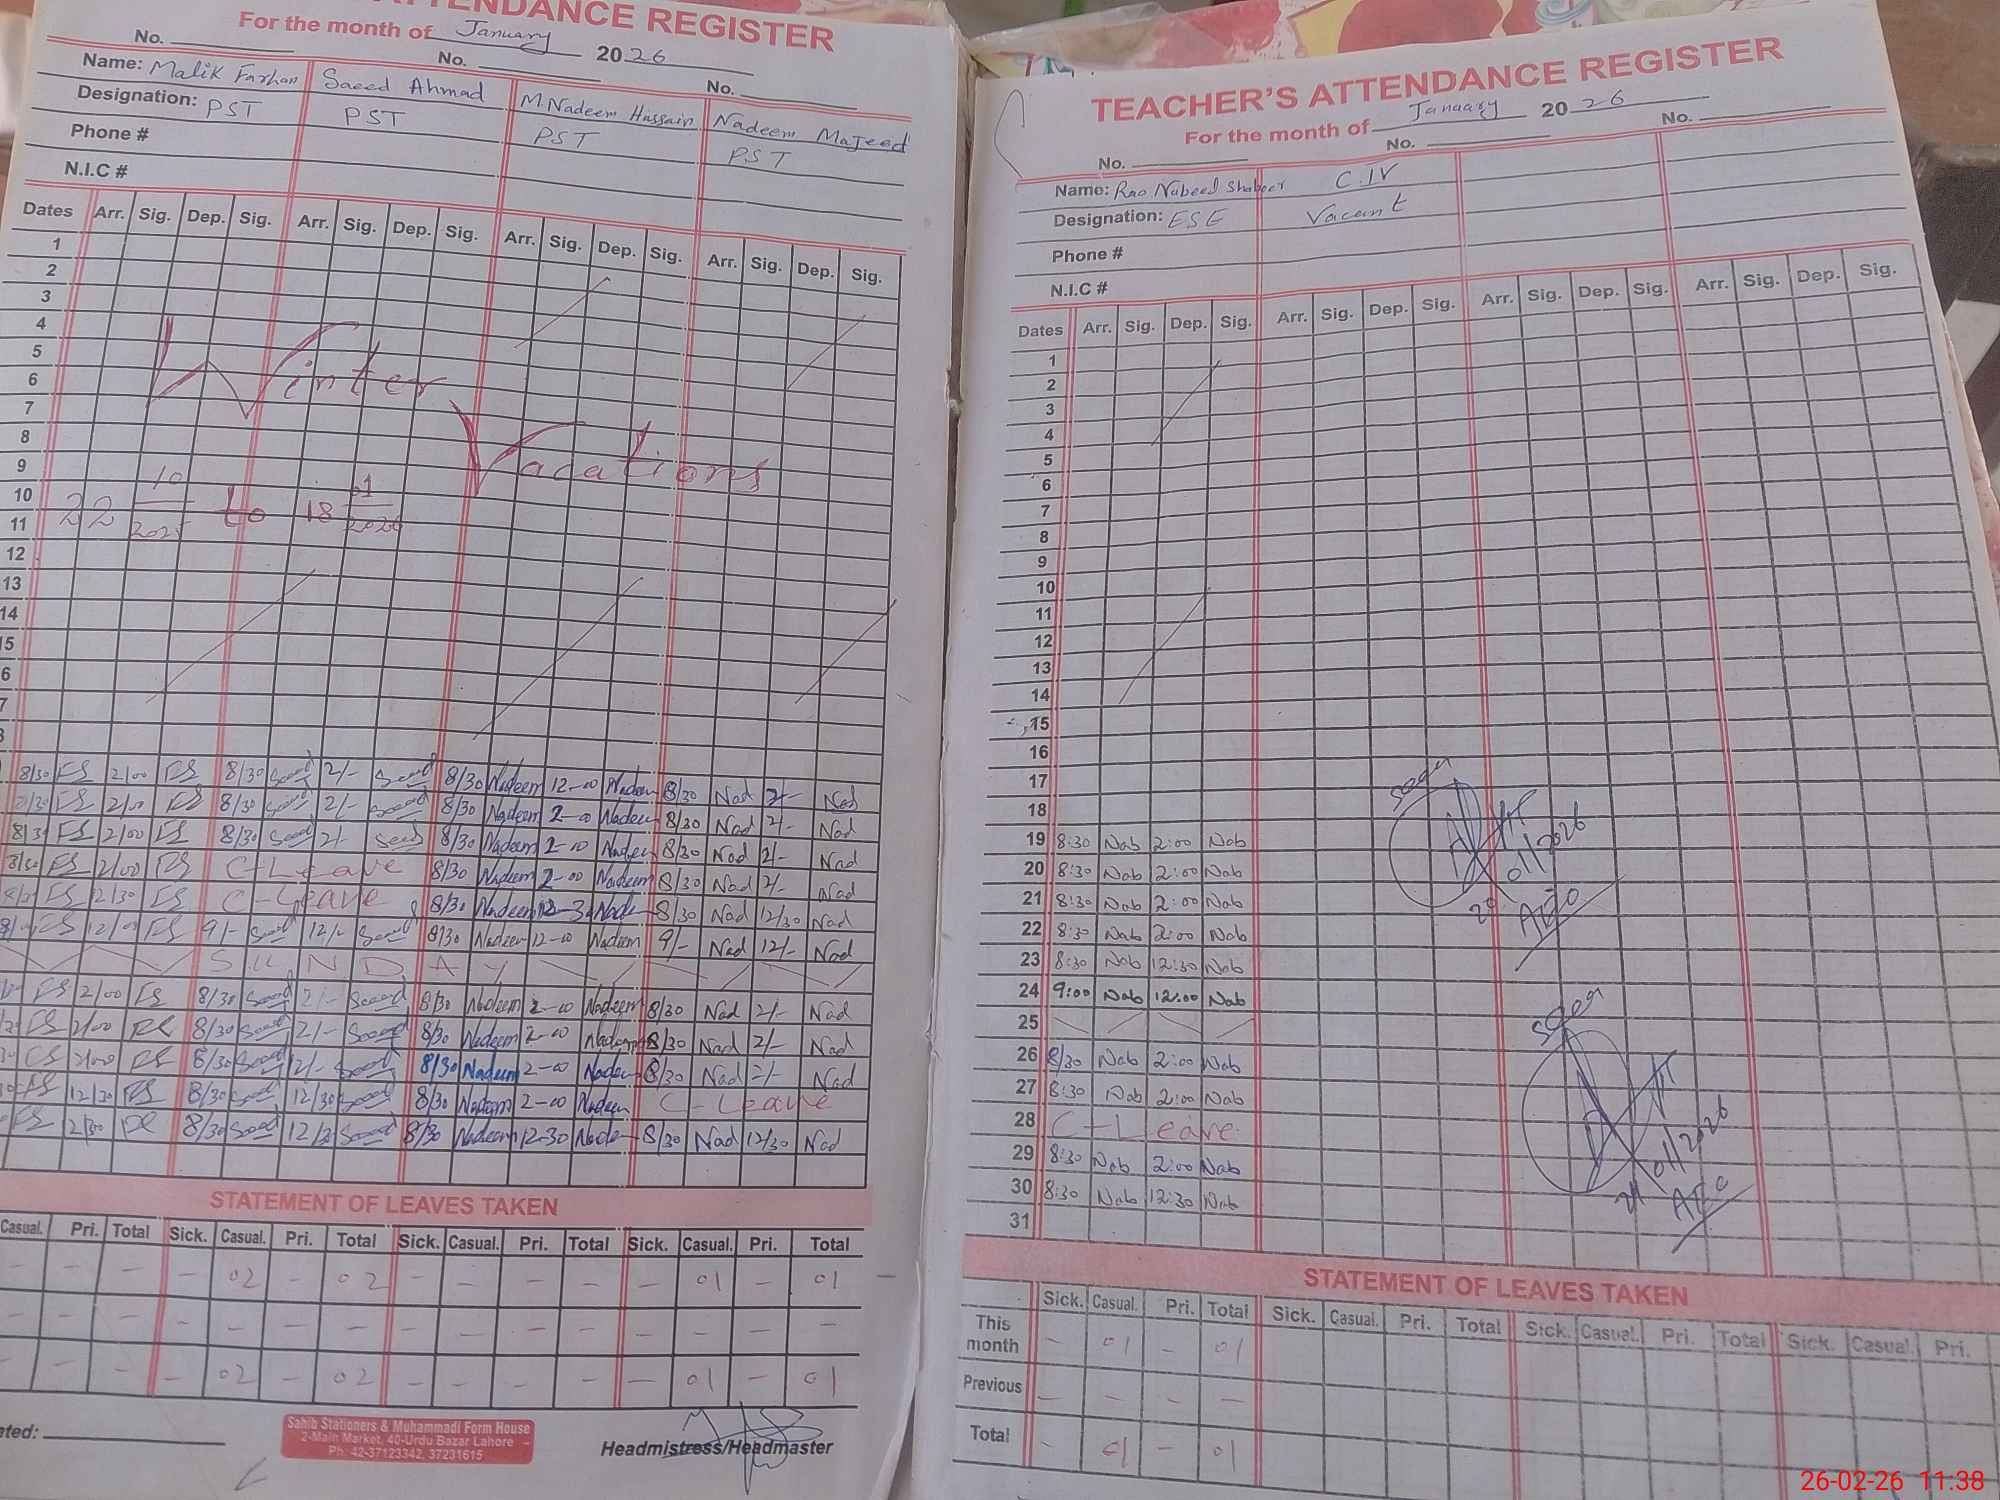 ATTENDANCE REGISTER
For the month of January 2026
No. No. No.
Name: Malik Farhan Saeed Ahmad M. Nadeem Hussain Nadeem Majeed
Designation: PST PST PST PST
Phone #
N.I.C #
Dates Arr. Sig. Dep. Sig. Arr. Sig. Dep. Sig. Arr. Sig. Dep. Sig. Arr. Sig. Dep. Sig.
1
2
3
4
5
6
7
8
9
10
11
12
13
14
15
6
7
Winter Vacations
22 10 2025 to 18 01 2026
8/30 FS 2/00 FS 8/30 Saeed 2/- Saeed 8/30 Nadeem 12-00 Nadeem 8/30 Nad 2/- Nad
8/30 FS 2/00 FS 8/30 Saeed 2/- Saeed 8/30 Nadeem 2-00 Nadeem 8/30 Nad 2/- Nad
8/30 FS 2/00 FS 8/30 Saeed 2/- Saeed 8/30 Nadeem 2-00 Nadeem 8/30 Nad 2/- Nad
8/30 FS 2/00 FS C-Leave 8/30 Nadeem 2-00 Nadeem 8/30 Nad 2/- Nad
FS 12/30 FS C-Leave 8/30 Nadeem 12-30 Nadeem 8/30 Nad 12/30 Nad
FS 12/00 FS 9/- Saeed 12/- Saeed 8/30 Nadeem 12-00 Nadeem 9/- Nad 12/- Nad
SUNDAY
FS 2/00 FS 8/30 Saeed 2/- Saeed 8/30 Nadeem 2-00 Nadeem 8/30 Nad 2/- Nad
FS 2/00 FS 8/30 Saeed 2/- Saeed 8/30 Nadeem 2-00 Nadeem 8/30 Nad 2/- Nad
FS 2/00 FS 8/30 Saeed 2/- Saeed 8/30 Nadeem 2-00 Nadeem 8/30 Nad 2/- Nad
FS 12/30 FS 8/30 Saeed 12/30 Saeed 8/30 Nadeem 2-00 Nadeem C-Leave
FS 8/30 Saeed 12/30 Saeed 8/30 Nadeem 12-30 Nadeem 8/30 Nad 12/30 Nad
STATEMENT OF LEAVES TAKEN
Casual. Pri. Total Sick. Casual. Pri. Total Sick. Casual. Pri. Total Sick. Casual. Pri. Total
- - - - 02 - 02 - - - - - 01 - 01
- - - - - - - - - - - - - - -
- - - - 02 - 02 - - - - - 01 - 01
Sahib Stationers & Muhammadi Form House
2-Main Market, 40-Urdu Bazar Lahore
Ph: 42-37123342, 37231615
Headmistress/Headmaster
TEACHER'S ATTENDANCE REGISTER
For the month of January 2026
No. No. No.
Name: Rao Nabeed Shabeer C.IV
Designation: ESE Vacant
Phone #
N.I.C #
Dates Arr. Sig. Dep. Sig. Arr. Sig. Dep. Sig. Arr. Sig. Dep. Sig. Arr. Sig. Dep. Sig.
1
2
3
4
5
6
7
8
9
10
11
12
13
14
15
16
17
18
19 8:30 Nab 2:00 Nab
20 8:30 Nab 2:00 Nab
21 8:30 Nab 2:00 Nab
22 8:30 Nab 2:00 Nab
23 8:30 Nab 12:30 Nab
24 9:00 Nab 12:00 Nab
25
26 8/30 Nab 2:00 Nab
27 8:30 Nab 2:00 Nab
28 C-Leave
29 8:30 Nab 2:00 Nab
30 8:30 Nab 12:30 Nab
31
Seen
01/2026
AEO
Seen
01/2026
AEO
STATEMENT OF LEAVES TAKEN
Sick. Casual. Pri. Total Sick. Casual. Pri. Total Sick. Casual. Pri. Total Sick. Casual. Pri.
This month - 01 - 01
Previous - - - -
Total - 01 - 01
26-02-26 11:38